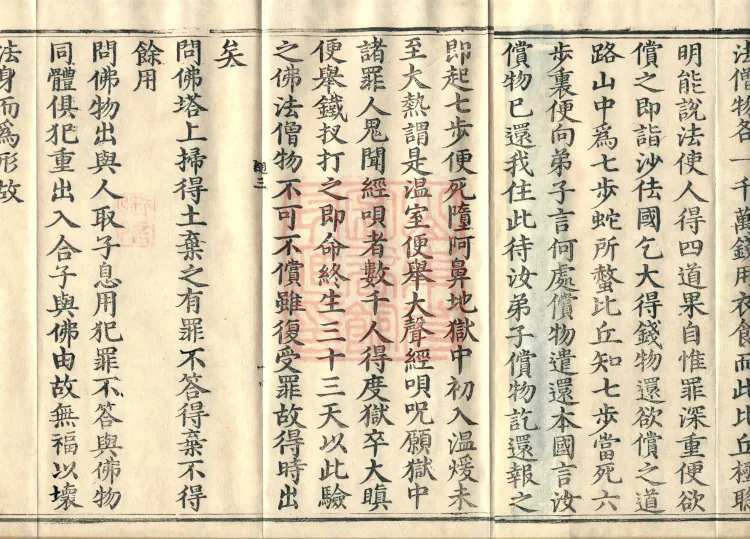 法僧物各一千萬錢用衣食而此比丘極聡
明能說法使人得四道果自惟罪深重便欲
償之即詣沙佉國乞大得錢物還欲償之道
路山中爲七步蛇所螫比丘知七步當死六
步裏便向弟子言何處償物遣還本國言汝
償物已還我住此待汝弟子償物訖還報之
即起七步便死墮阿鼻地獄中初入温煖未
至大熱謂是温室便舉大聲經唄呪願獄中
諸罪人鬼聞經唄者數千人得度獄卒大瞋
便舉鐵扠打之即命終生三十三天以此驗
之佛法僧物不可不償雖復受罪故得時出
矣
問佛塔上掃得土棄之有罪不答得棄不得
餘用
問佛物出與人取子息用犯罪不答與佛物
同體俱犯重出入合子與佛由故無福以壞
法身而爲形故